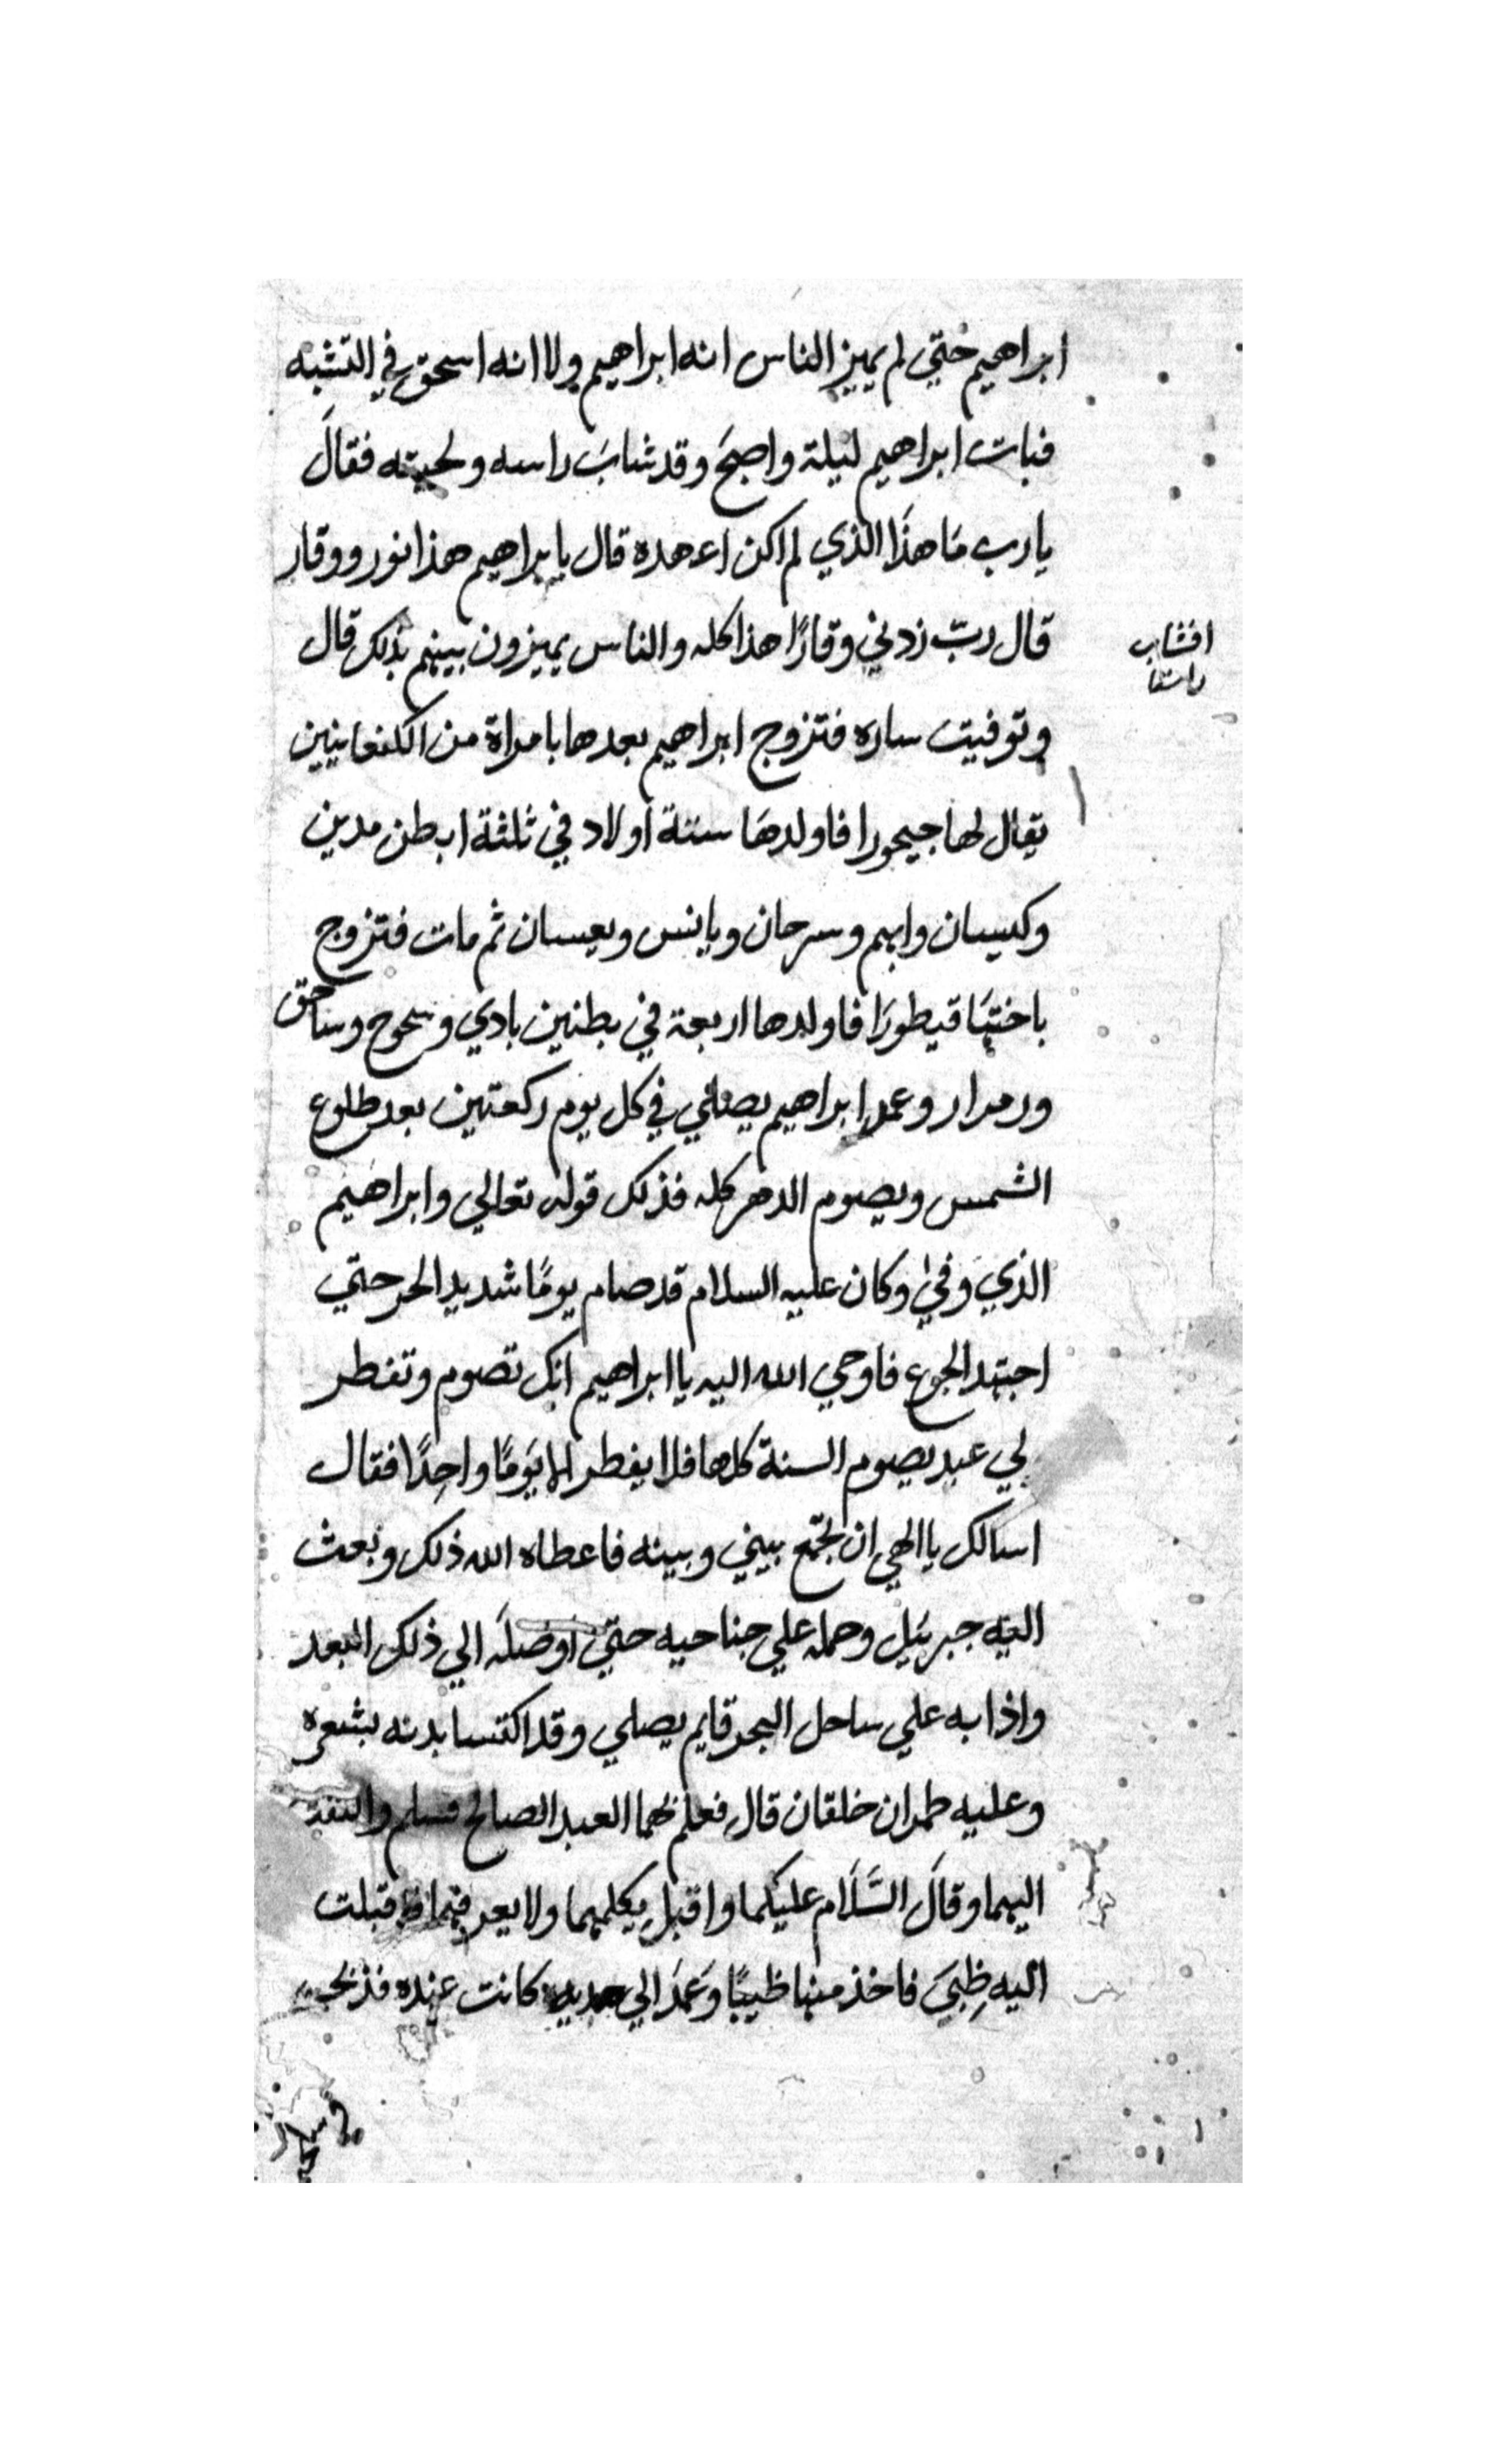 ابراهيم حتي لم يميز الناس انه ابراهيم ولا انه اسحق في التشبه
فبات ابراهيم ليلة واصبح وقد شابَ راسه ولحيته فقالَ
يا رب مَا هذَا الذي لم اكن اعهده قال يا براهيم هذا نور ووقار
قال ربّ زدني وقارًا هذا كله والناس يميزون بينهم بذلك قال
وتوفيت ساره فتزوج ابراهيم بعدها بامراة من الكنعانيين
يقال لها جيحورا فاولدهَا ستة اولاد في ثلثة ابطن مدين
وكيسان وابهم وسرحان ويانس ويعسان ثم مات فتزوج
باختهَا قيطورَا فاولدها اربعة في بطنين بادي وسحوح وساحق
ورمرار وعمد ابراهيم يصلي في كل يوم ركعتين بعد طلوع
الشمس ويصوم الدهر كله فذلك قوله تعالي وابراهيم
الذي وفيٰ وكان عليه السلام قد صام يومًا شديد الحر حتي
اجتهد الجوع فاوحي الله اليه يا ابراهيم انك تصوم وتفطر
لي عبد يصوم السنة كلها فلا يفطر الا يَومًا واحِدًا فقال
اسالك يا الهي ان تجمع بيني وبينه فاعطاه الله ذلك وبعث
اليه جبرئيل وحمله علي جناحيه حتي اوصلَه الي ذلك العبد
واذا به علي ساحل البحر قايم يصلي وقد اكتسا بدنه بشعره
وعليه طمران خلقان قال فعلم بهما العبد الصالح فسلم والتفت
اليهما وقالَ السَّلَام عليكما واقبل يكلمهما ولا يعرفهما فاقبلت
اليه ظِبيَ فاخذ منها ظبيًا وَعمَدَ الي كانت عنده فذبحه
افشاب